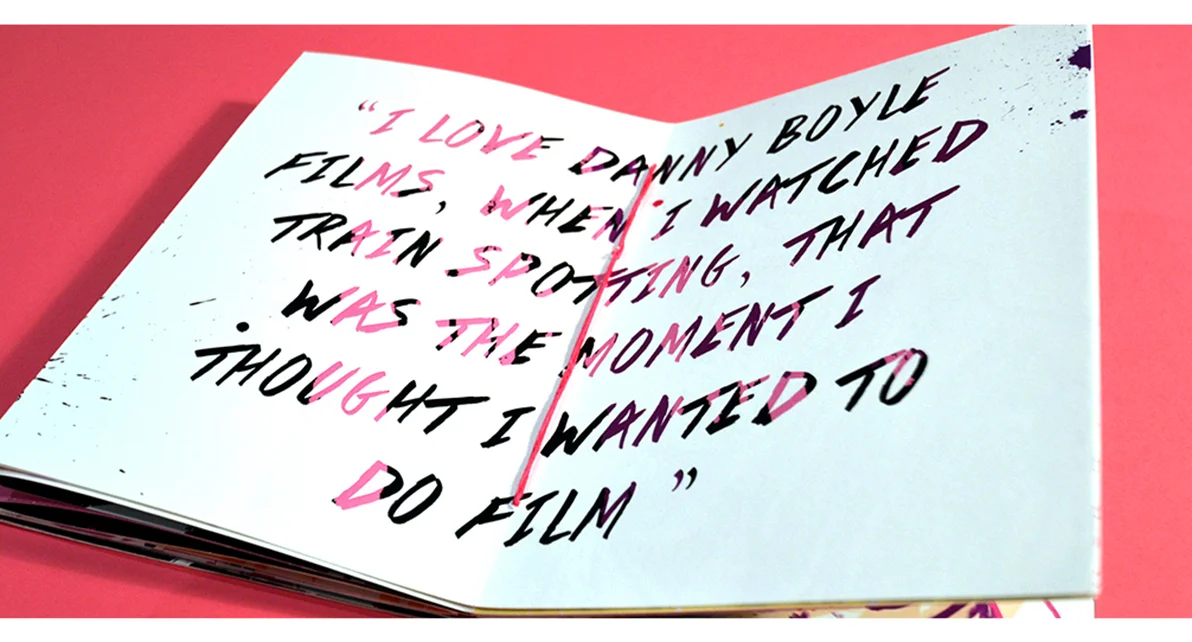 “I LOVE DANNY BOYLE
FILMS, WHEN I WATCHED
TRAIN SPOTTING, THAT
WAS THE MOMENT I
THOUGHT I WANTED TO
DO FILM”